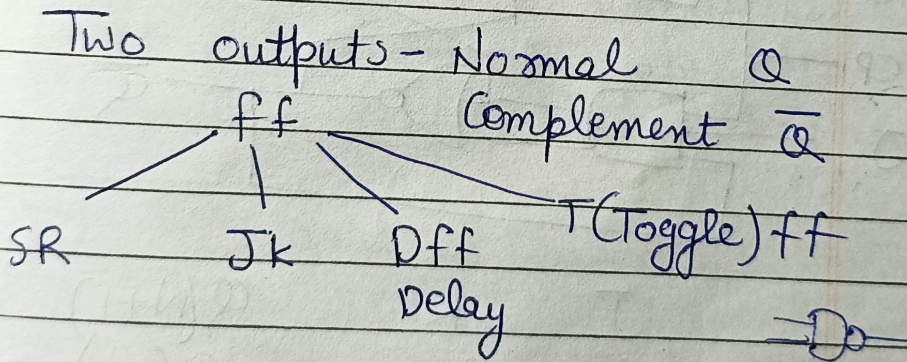 Two outputs - Normal Q
ff Complement Q̅
SR Jk Dff T(Toggle) ff
Delay